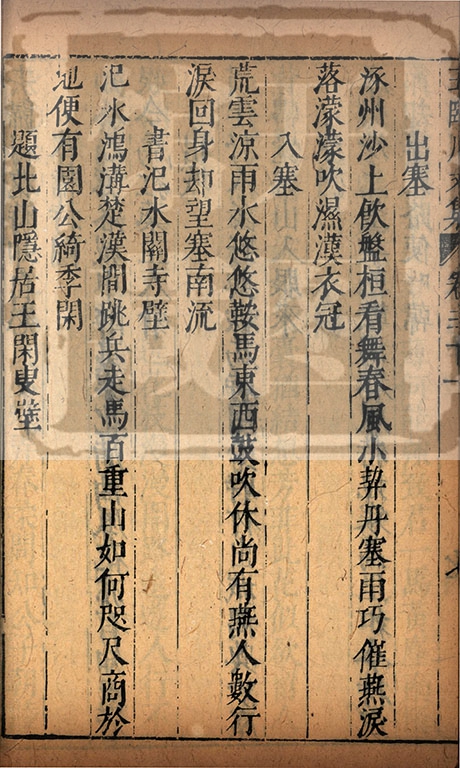 出塞
涿州沙上飲盤桓看舞春風小契丹塞雨巧催燕淚
落濛濛吹濕漢衣冠
入塞
荒雲涼雨水悠悠鞍馬東西鼓吹休尚有燕人數行
淚回身却望塞南流
書汜水關寺壁
汜水鴻溝楚漢間跳兵走馬百重山如何咫尺商於
地便有園公綺季閑
題北山隱居王閑叟壁